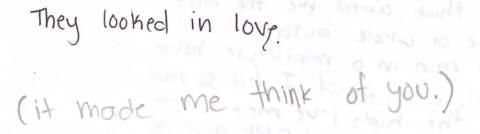 They looked in love.
(it made me think of you.)